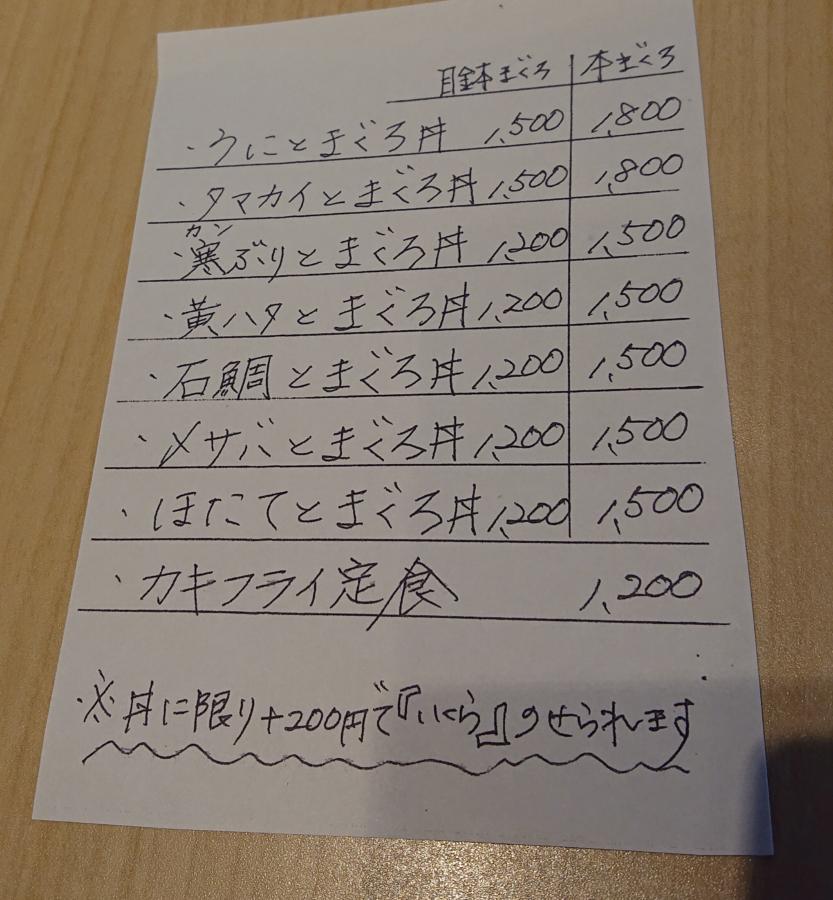 目鉢まぐろ 本まぐろ
・うにとまぐろ丼 1,500 1,800
・タマカイとまぐろ丼 1,500 1,800
カン
・寒ぶりとまぐろ丼 1,200 1,500
・黄ハタとまぐろ丼 1,200 1,500
・石鯛とまぐろ丼 1,200 1,500
・〆サバとまぐろ丼 1,200 1,500
・ほたてとまぐろ丼 1,200 1,500
・カキフライ定食 1,200
※丼に限り+200円で『いくら』のせられます